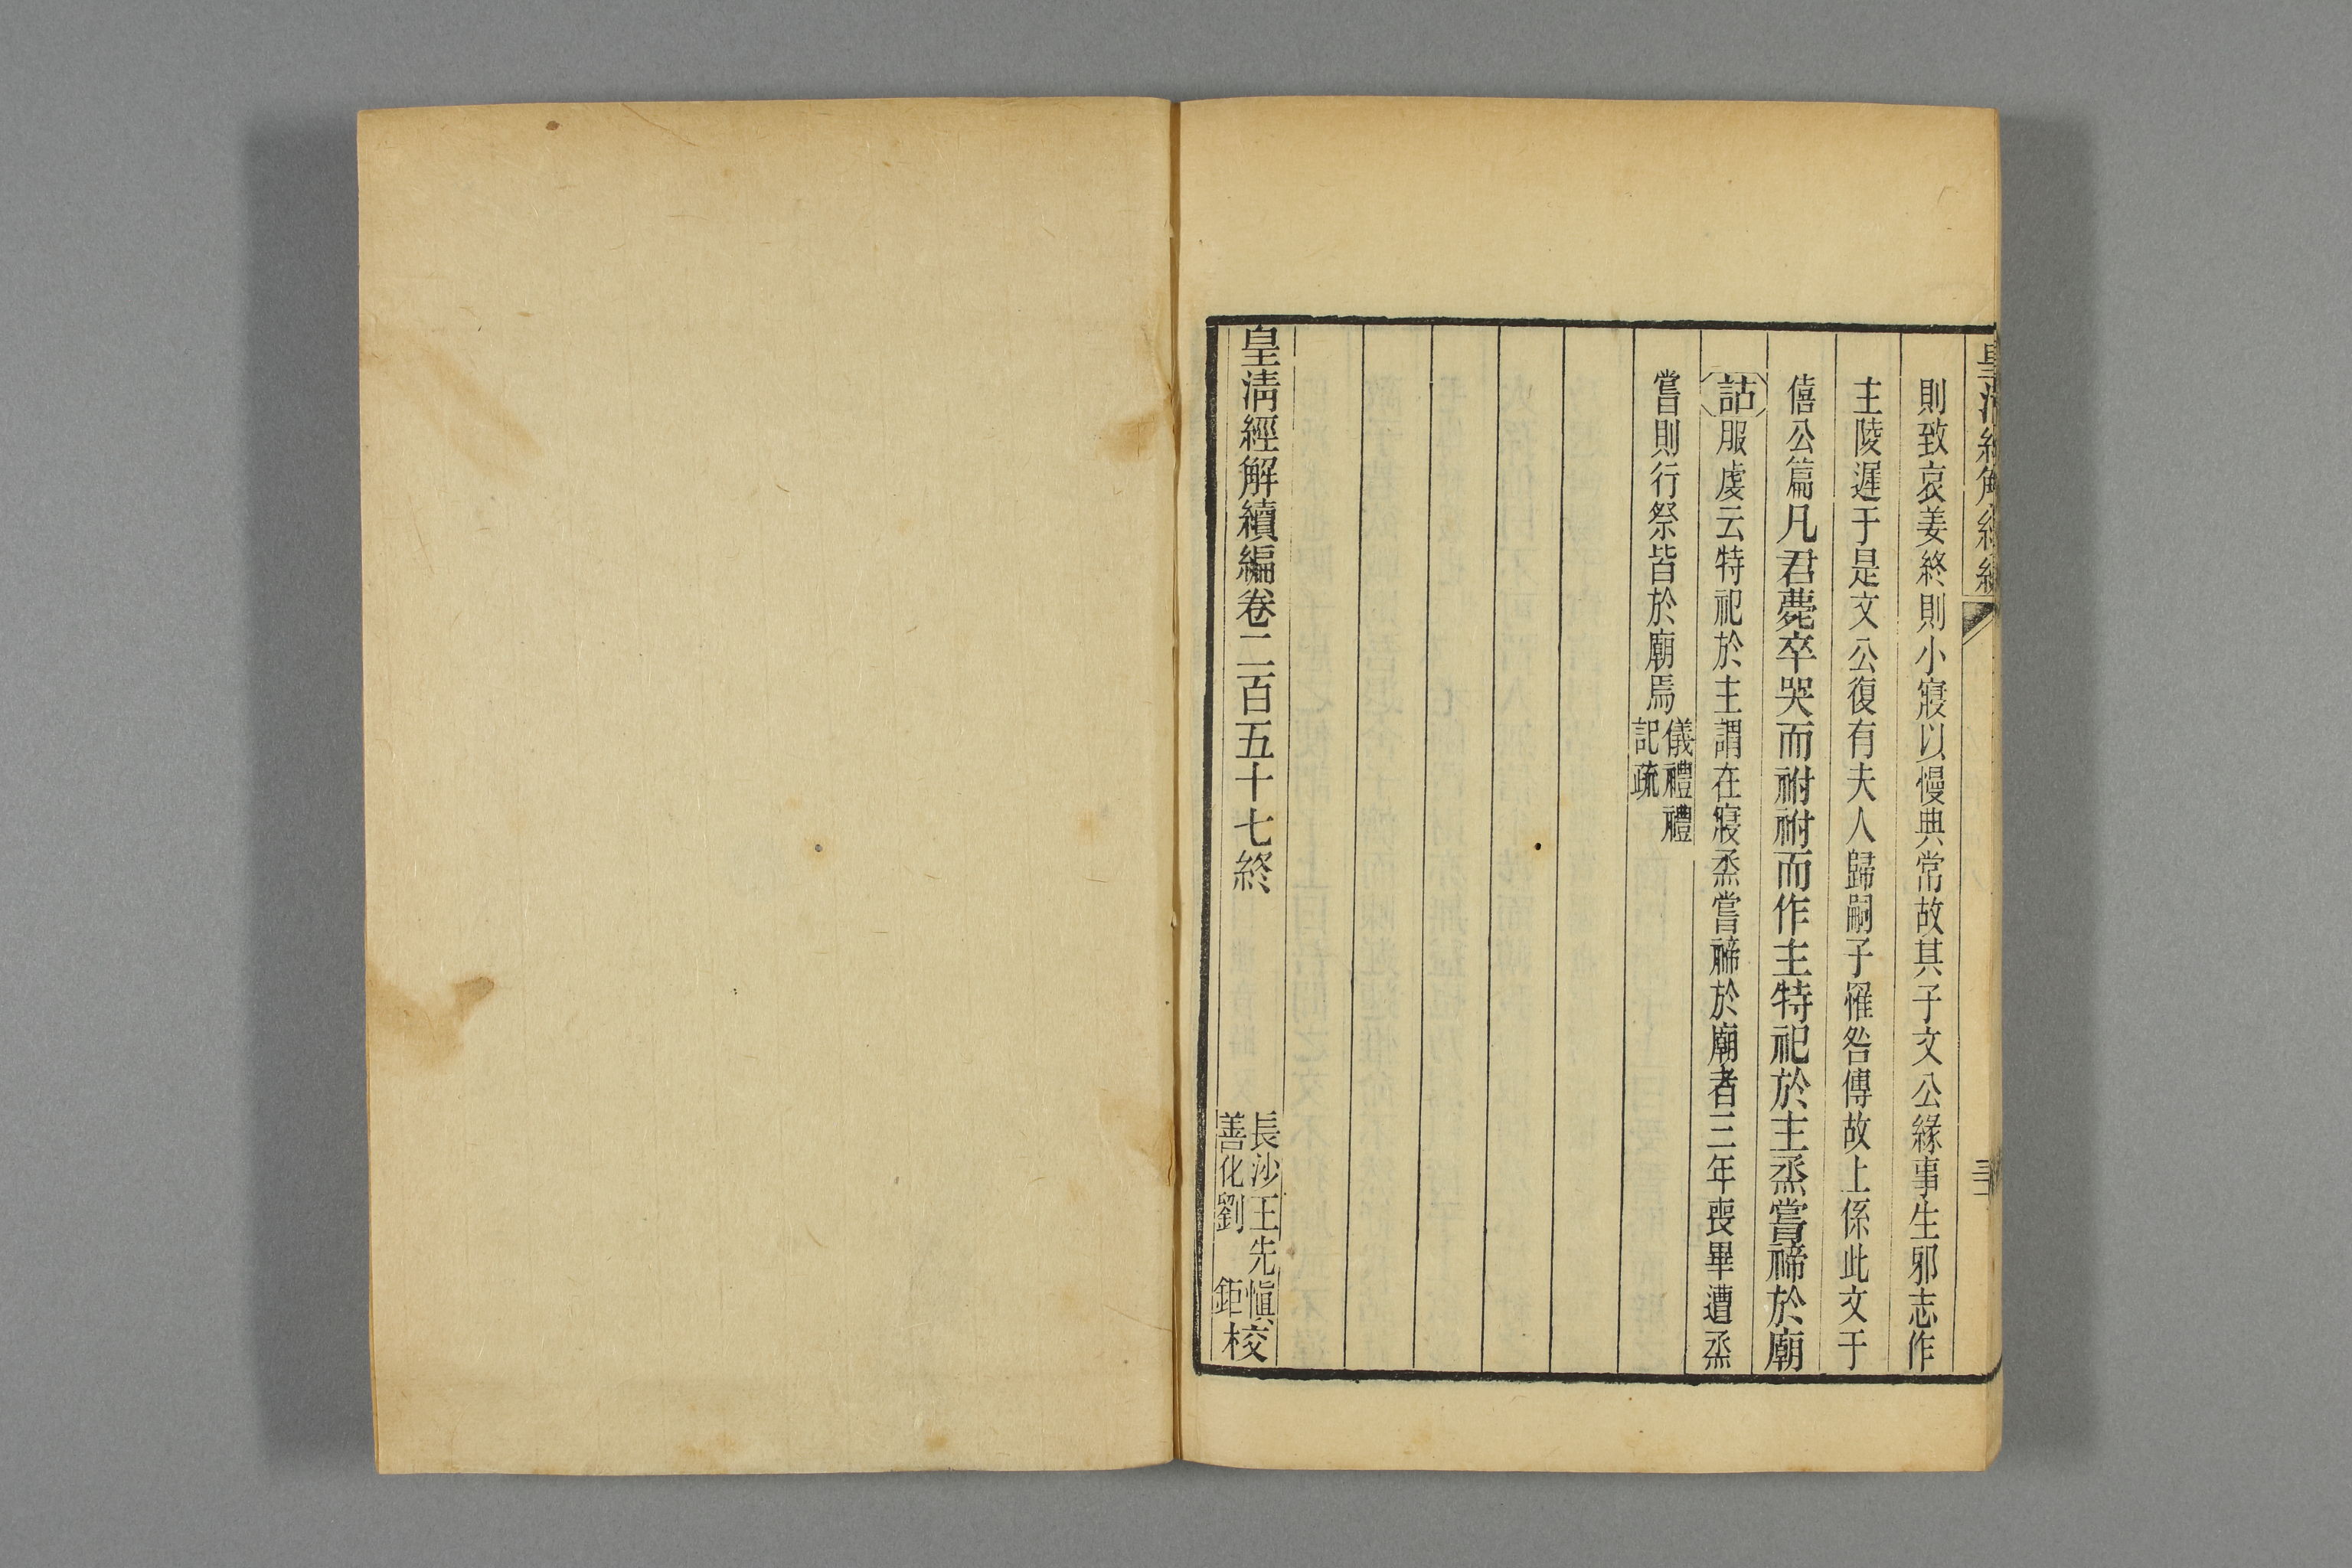 皇清經解續編
三
則致哀姜終則小寢以慢典常故其子文公緣事生邪志作
主陵遲于是文公復有夫人歸嗣子罹咎傳故上係此文于
僖公篇凡君薨卒哭而祔祔而作主特祀於主烝嘗禘於廟
詁服虔云特祀於主謂在寢烝嘗禘於廟者三年喪畢遭烝
嘗則行祭皆於廟焉儀禮禮
記疏
皇清經解續編卷二百五十七終
長沙王先愼
善化劉 鉅
校